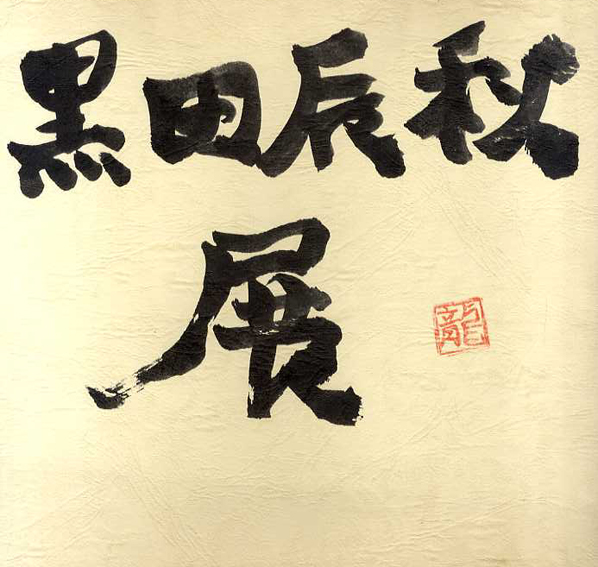 黒田辰秋
展
龍